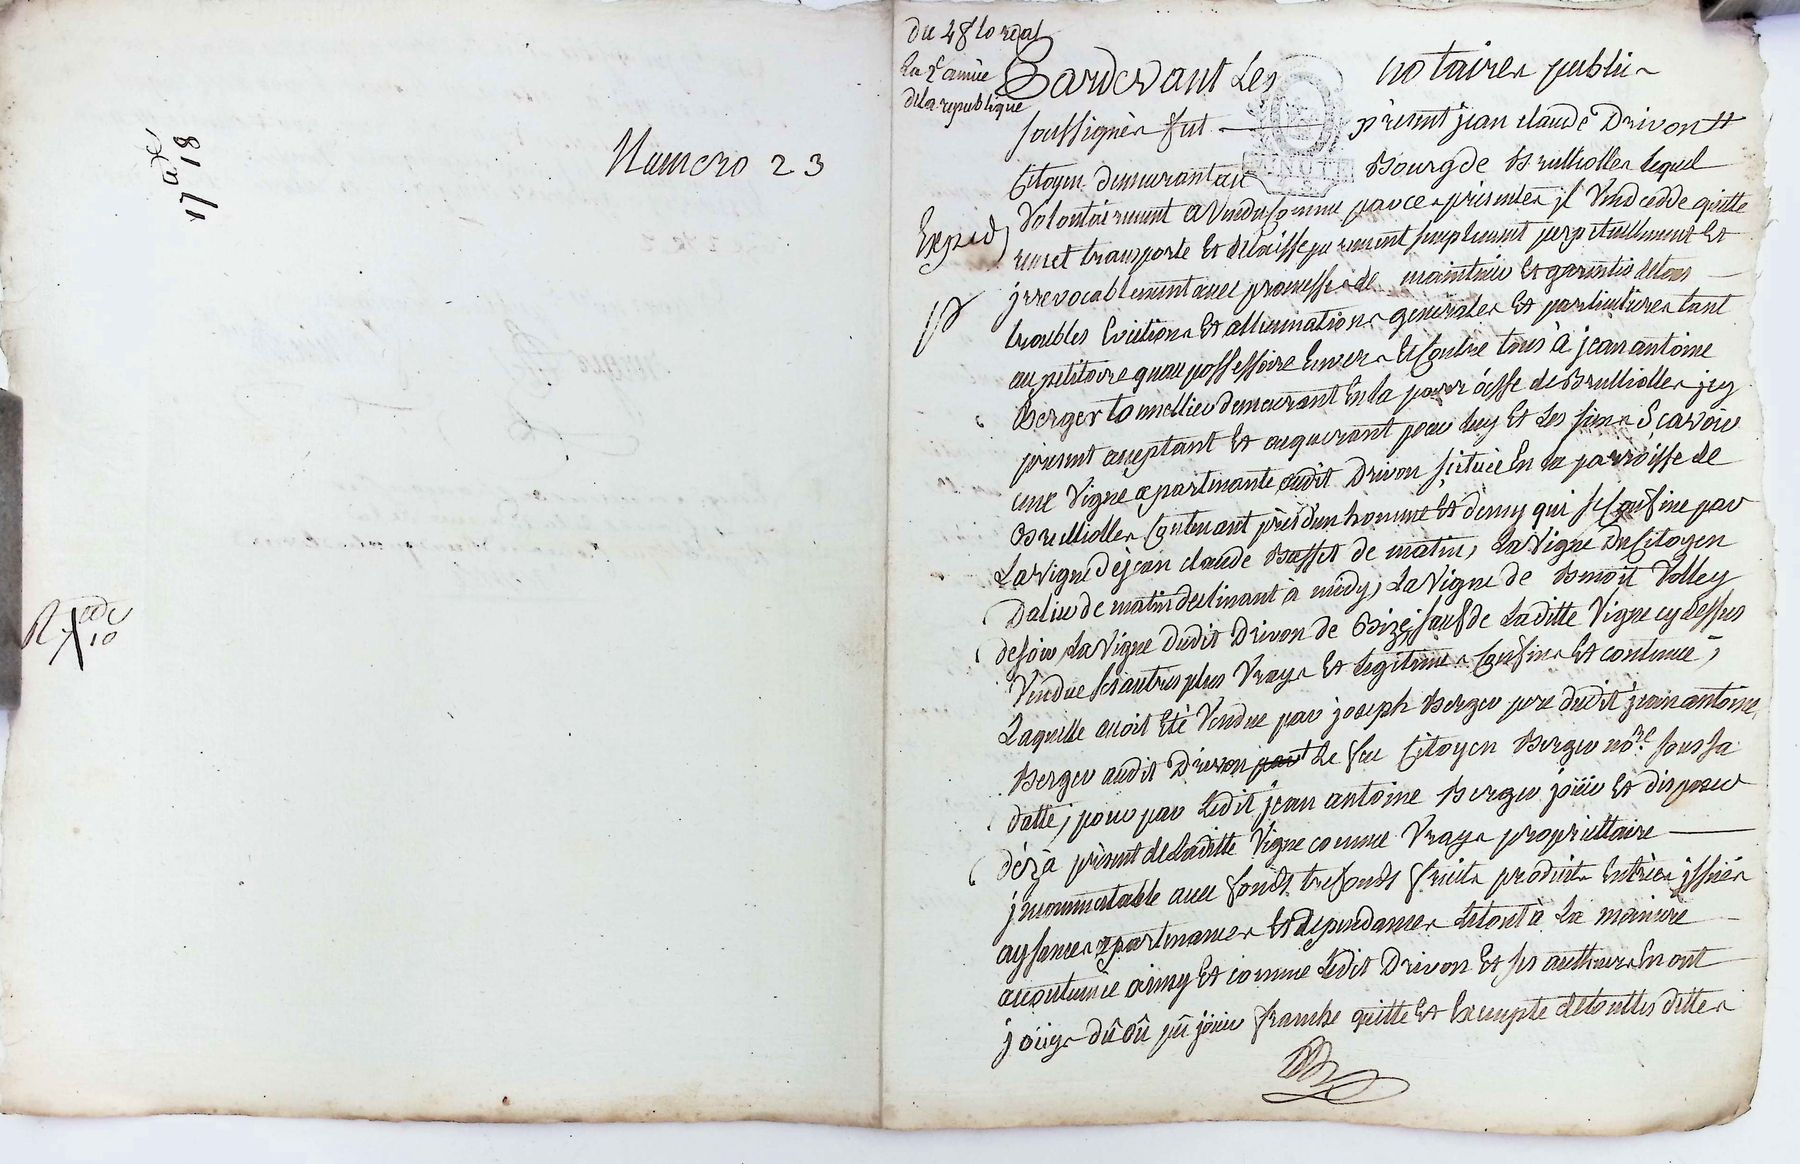 Numero 23
17 18
10
du 4 floreal
La 2e année
de la republique
Pardevant Les notaires publics
soussignés fut present jean claude Drivon
Citoyen demeurant au Bourg de Brulliolles lequel
Volontairement a Vendu Comme par ces presentes il Vend cedde quitte
Exped
remet transporte Et delaisse purement simplement perpetuellement Et
jrrevocablement avec promesse de maintenir Et garantir de tous
troubles Evictions Et alliennations generales Et particulieres tant
au petitoire quau possessoire Envers Et Contre tous à jean antoine
Berger tonnellier demeurant En la parroisse de Brulliolles jcy
present acceptant Et acquerant pour luy Et Les siens Scavoir
une Vigne apartenante audit Drivon scituée En la parroisse de
Brulliolles Contenant près d'un homme Et demy qui se Confine par
La vigne de jean claude Basset de matin, La Vigne du Citoyen
de matin declinant à midy, La Vigne de Benoit Volley
de soir, La Vigne dudit Drivon de Bize, sauf de Laditte Vigne cy dessus
Vendue ses autres plus Vrays Et legitimes Confins Et contenue,
Laquelle avoit Eté Vendue par joseph Berger pere dudit jean antoine
Berger audit Drivon par Le feu Citoyen Berger nore sous sa
datte, pour par Ledit jean antoine Berger jouir Et disposer
déza présent de Laditte Vigne comme Vrays propriettaire
jncommutable avec fonds, trefonds fruits produits Entrées jssues
aysances apartenances Et dependances Le tout à La maniere
acoutumée ainsy Et comme Ledit Drivon Et ses autheurs En ont
jouys dû ou pû jouir franche quitte Et Exempte de touttes dettes